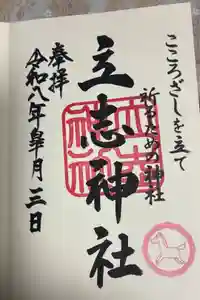 こころざしを立て
祈るための神社
立志神社
奉拝
令和八年皐月三日